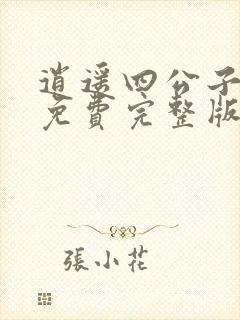 逍遥四公子
免費完整版
張小花